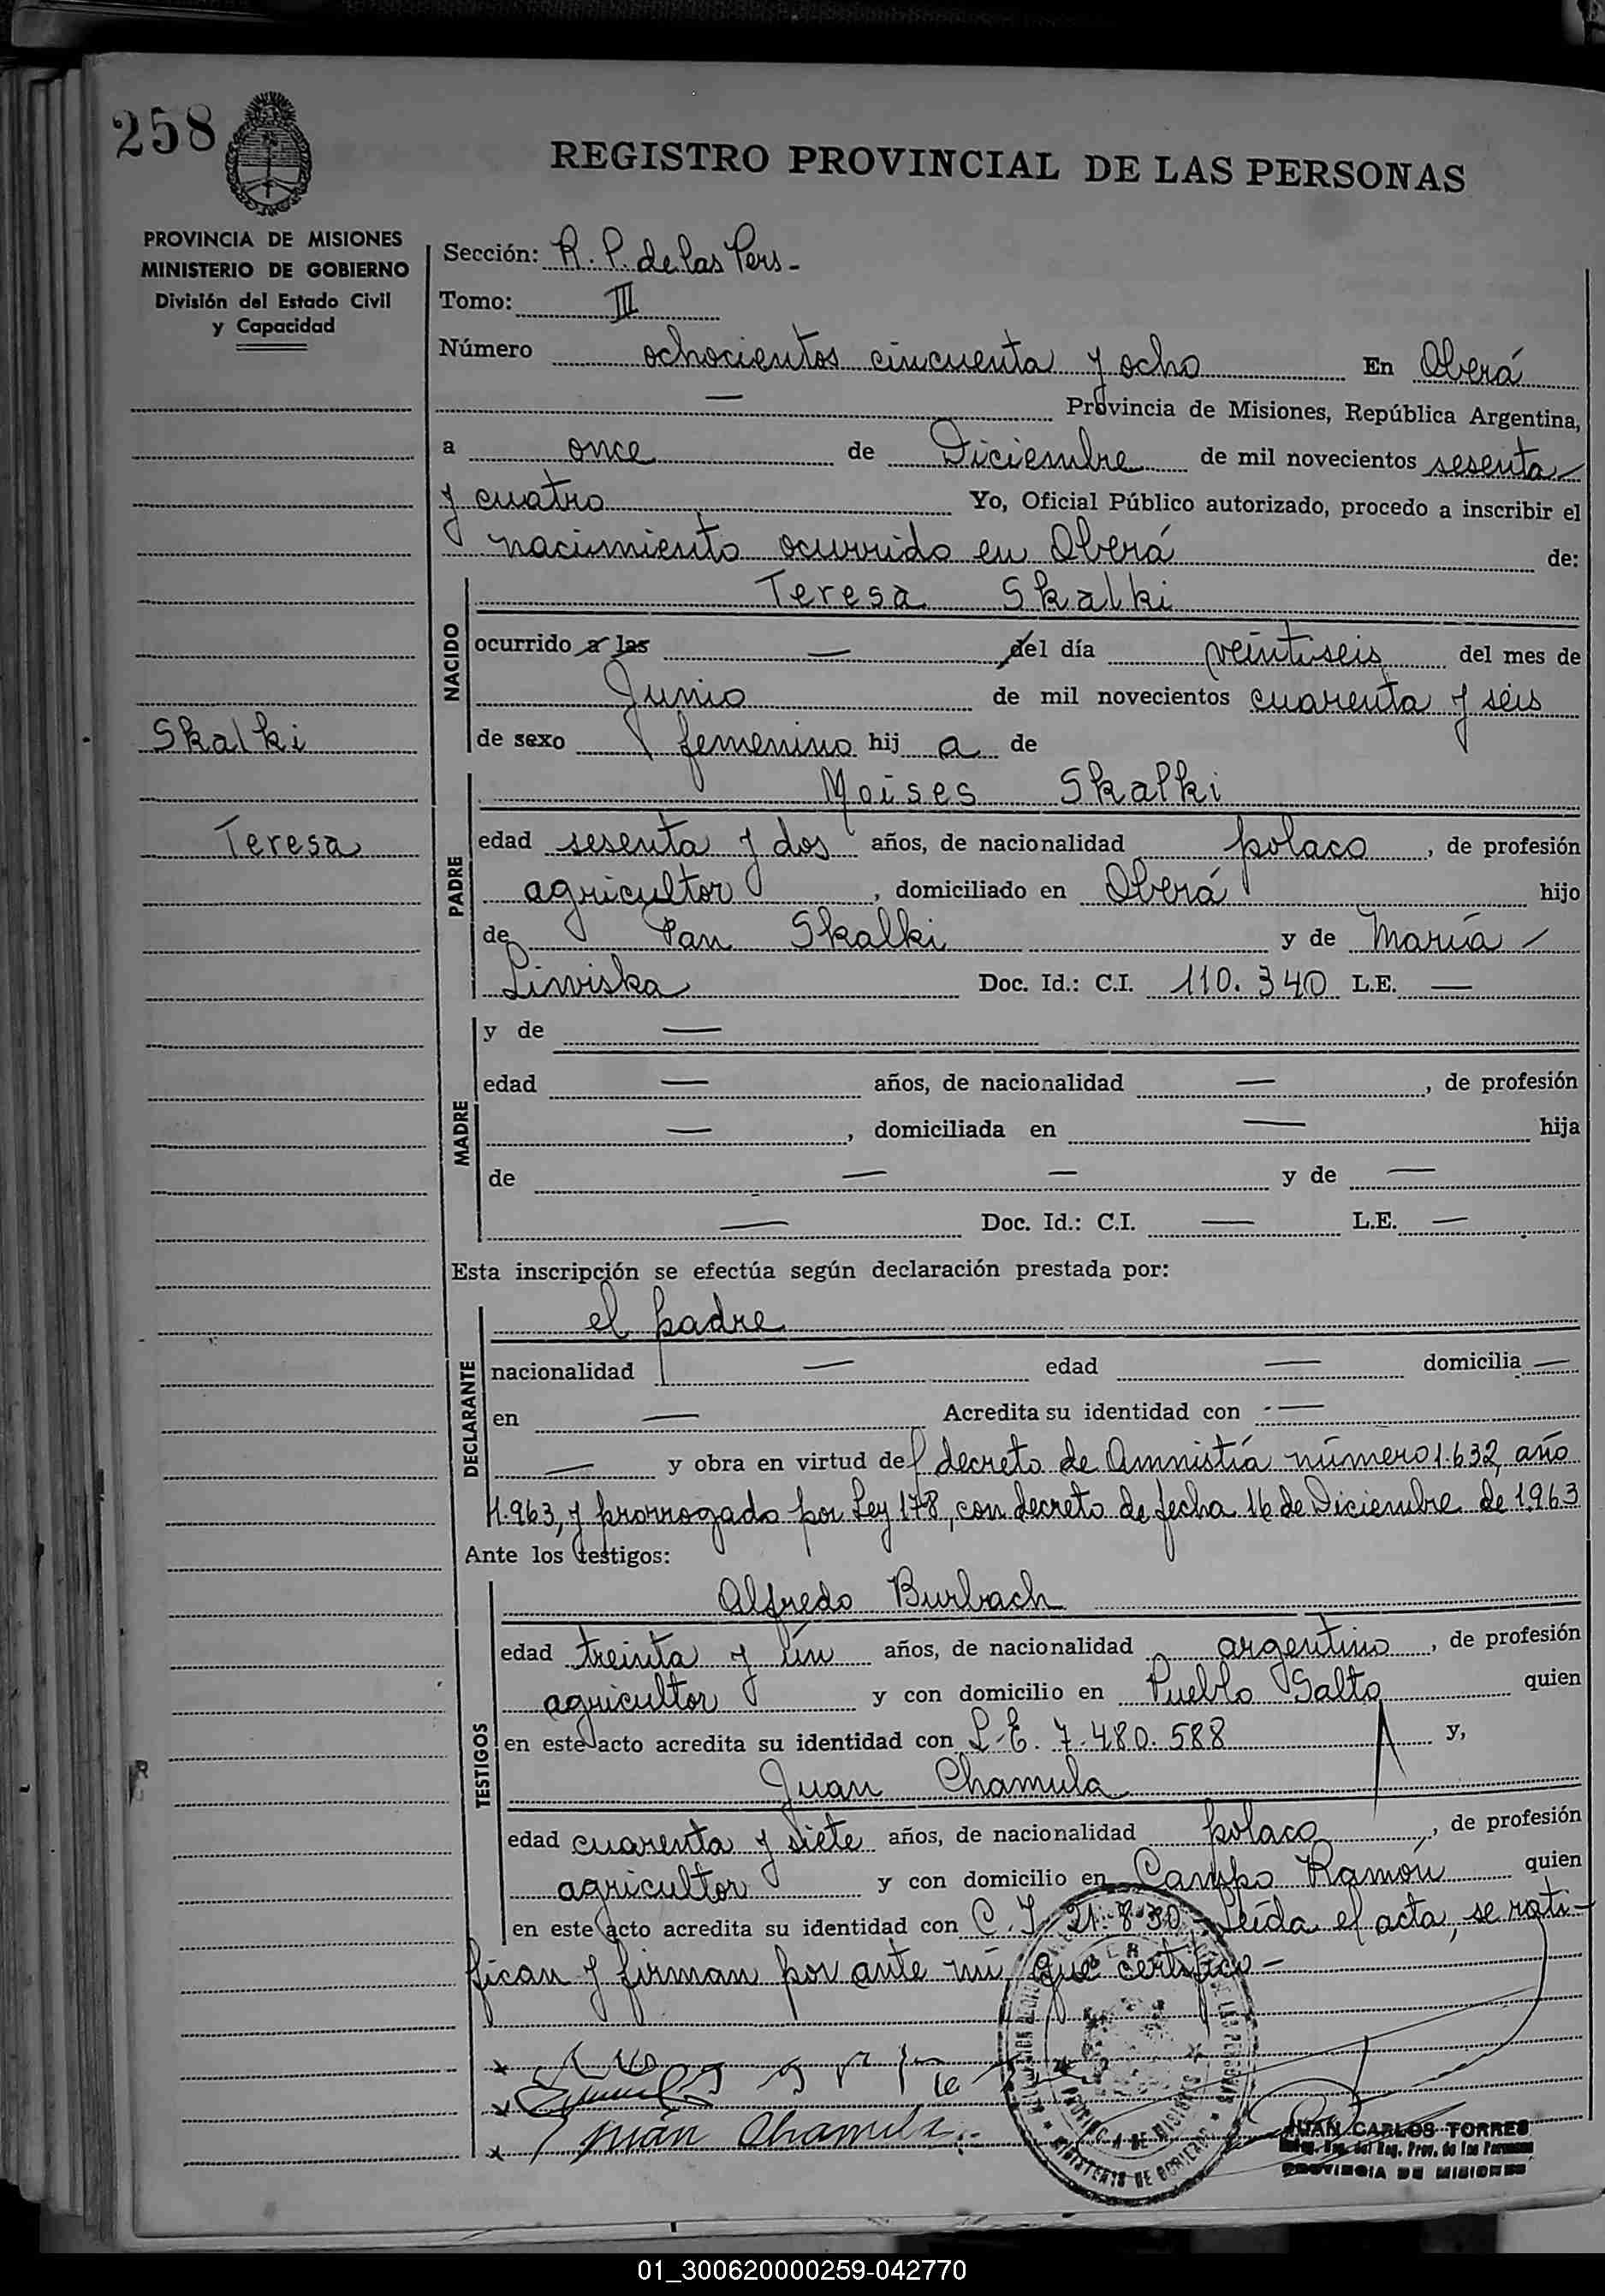 258
REGISTRO PROVINCIAL DE LAS PERSONAS
PROVINCIA DE MISIONES
MINISTERIO DE GOBIERNO
División del Estado Civil
y Capacidad
Skalki
Teresa
Sección: R. P. de las Pers -
Tomo: III
Número ochocientos cincuenta y ocho En Oberá
— Provincia de Misiones, República Argentina,
a once de Diciembre de mil novecientos sesenta
y cuatro Yo, Oficial Público autorizado, procedo a inscribir el
nacimiento ocurrido en Oberá de:
NACIDO
Teresa Skalki
ocurrido a las — del día veintiseis del mes de
Junio de mil novecientos cuarenta y seis
de sexo femenino hij a de
PADRE
Moises Skalki
edad sesenta y dos años, de nacionalidad polaco, de profesión
agricultor, domiciliado en Oberá hijo
de Pan Skalki y de María
Liwiska Doc. Id.: C.I. 110.340 L.E. —
MADRE
y de —
edad — años, de nacionalidad —, de profesión
—, domiciliada en — hija
de — — y de —
— Doc. Id.: C.I. — L.E. —
Esta inscripción se efectúa según declaración prestada por:
DECLARANTE
el padre
nacionalidad — edad — domicilia —
en — Acredita su identidad con —
— y obra en virtud del decreto de Amnistía número 1.632, año
1.963, y prorrogado por Ley 178, con decreto de fecha 16 de Diciembre de 1.963
Ante los testigos:
TESTIGOS
Alfredo Burbach
edad treinta y ún años, de nacionalidad argentino, de profesión
agricultor y con domicilio en Pueblo Salto quien
en este acto acredita su identidad con L.E. 7.480.588 y,
Juan Chamula
edad cuarenta y siete años, de nacionalidad polaco, de profesión
agricultor y con domicilio en Campo Ramón quien
en este acto acredita su identidad con C.I. 21.830 - Leída el acta, se rati-
fican y firman por ante mí, que certifico -
Juan Chamula
PROVINCIA DE MISIONES
MINISTERIO DE GOBIERNO
JUAN CARLOS TORRES
del Reg. Prov. de las Personas
PROVINCIA DE MISIONES
01_300620000259-042770